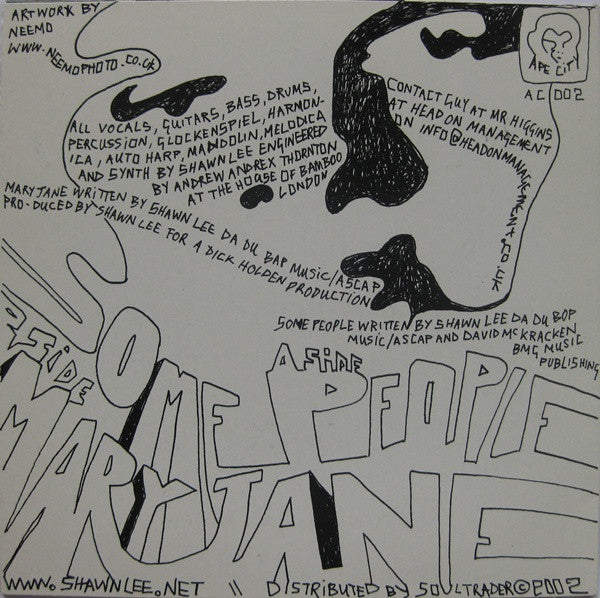 ARTWORK BY
NEEMO
WWW.NEEMOPHOTO.CO.UK
APE CITY
AC002
CONTACT GUY AT MR HIGGINS
AT HEAD ON MANAGEMENT
ON INFO@HEADONMANAGEMENT.CO.UK
ALL VOCALS, GUITARS, BASS, DRUMS,
PERCUSSION, GLOCKENSPIEL, HARMON-
ICA, AUTO HARP, MANDOLIN, MELODICA
AND SYNTH BY SHAWN LEE ENGINEERED
BY ANDREW ANDREX THORNTON
AT THE HOUSE OF BAMBOO
LONDON
MARY JANE WRITTEN BY SHAWN LEE DA DU BAP MUSIC/ASCAP
PRO-DUCED BY SHAWN LEE FOR A DICK HOLDEN PRODUCTION
SOME PEOPLE WRITTEN BY SHAWN LEE DA DU BOP
MUSIC/ASCAP AND DAVID MCKRACKEN
BMG MUSIC
PUBLISHING
A SIDE
SOME PEOPLE
B SIDE
MARY JANE
WWW.SHAWNLEE.NET \\ DISTRIBUTED BY SOULTRADER©2002